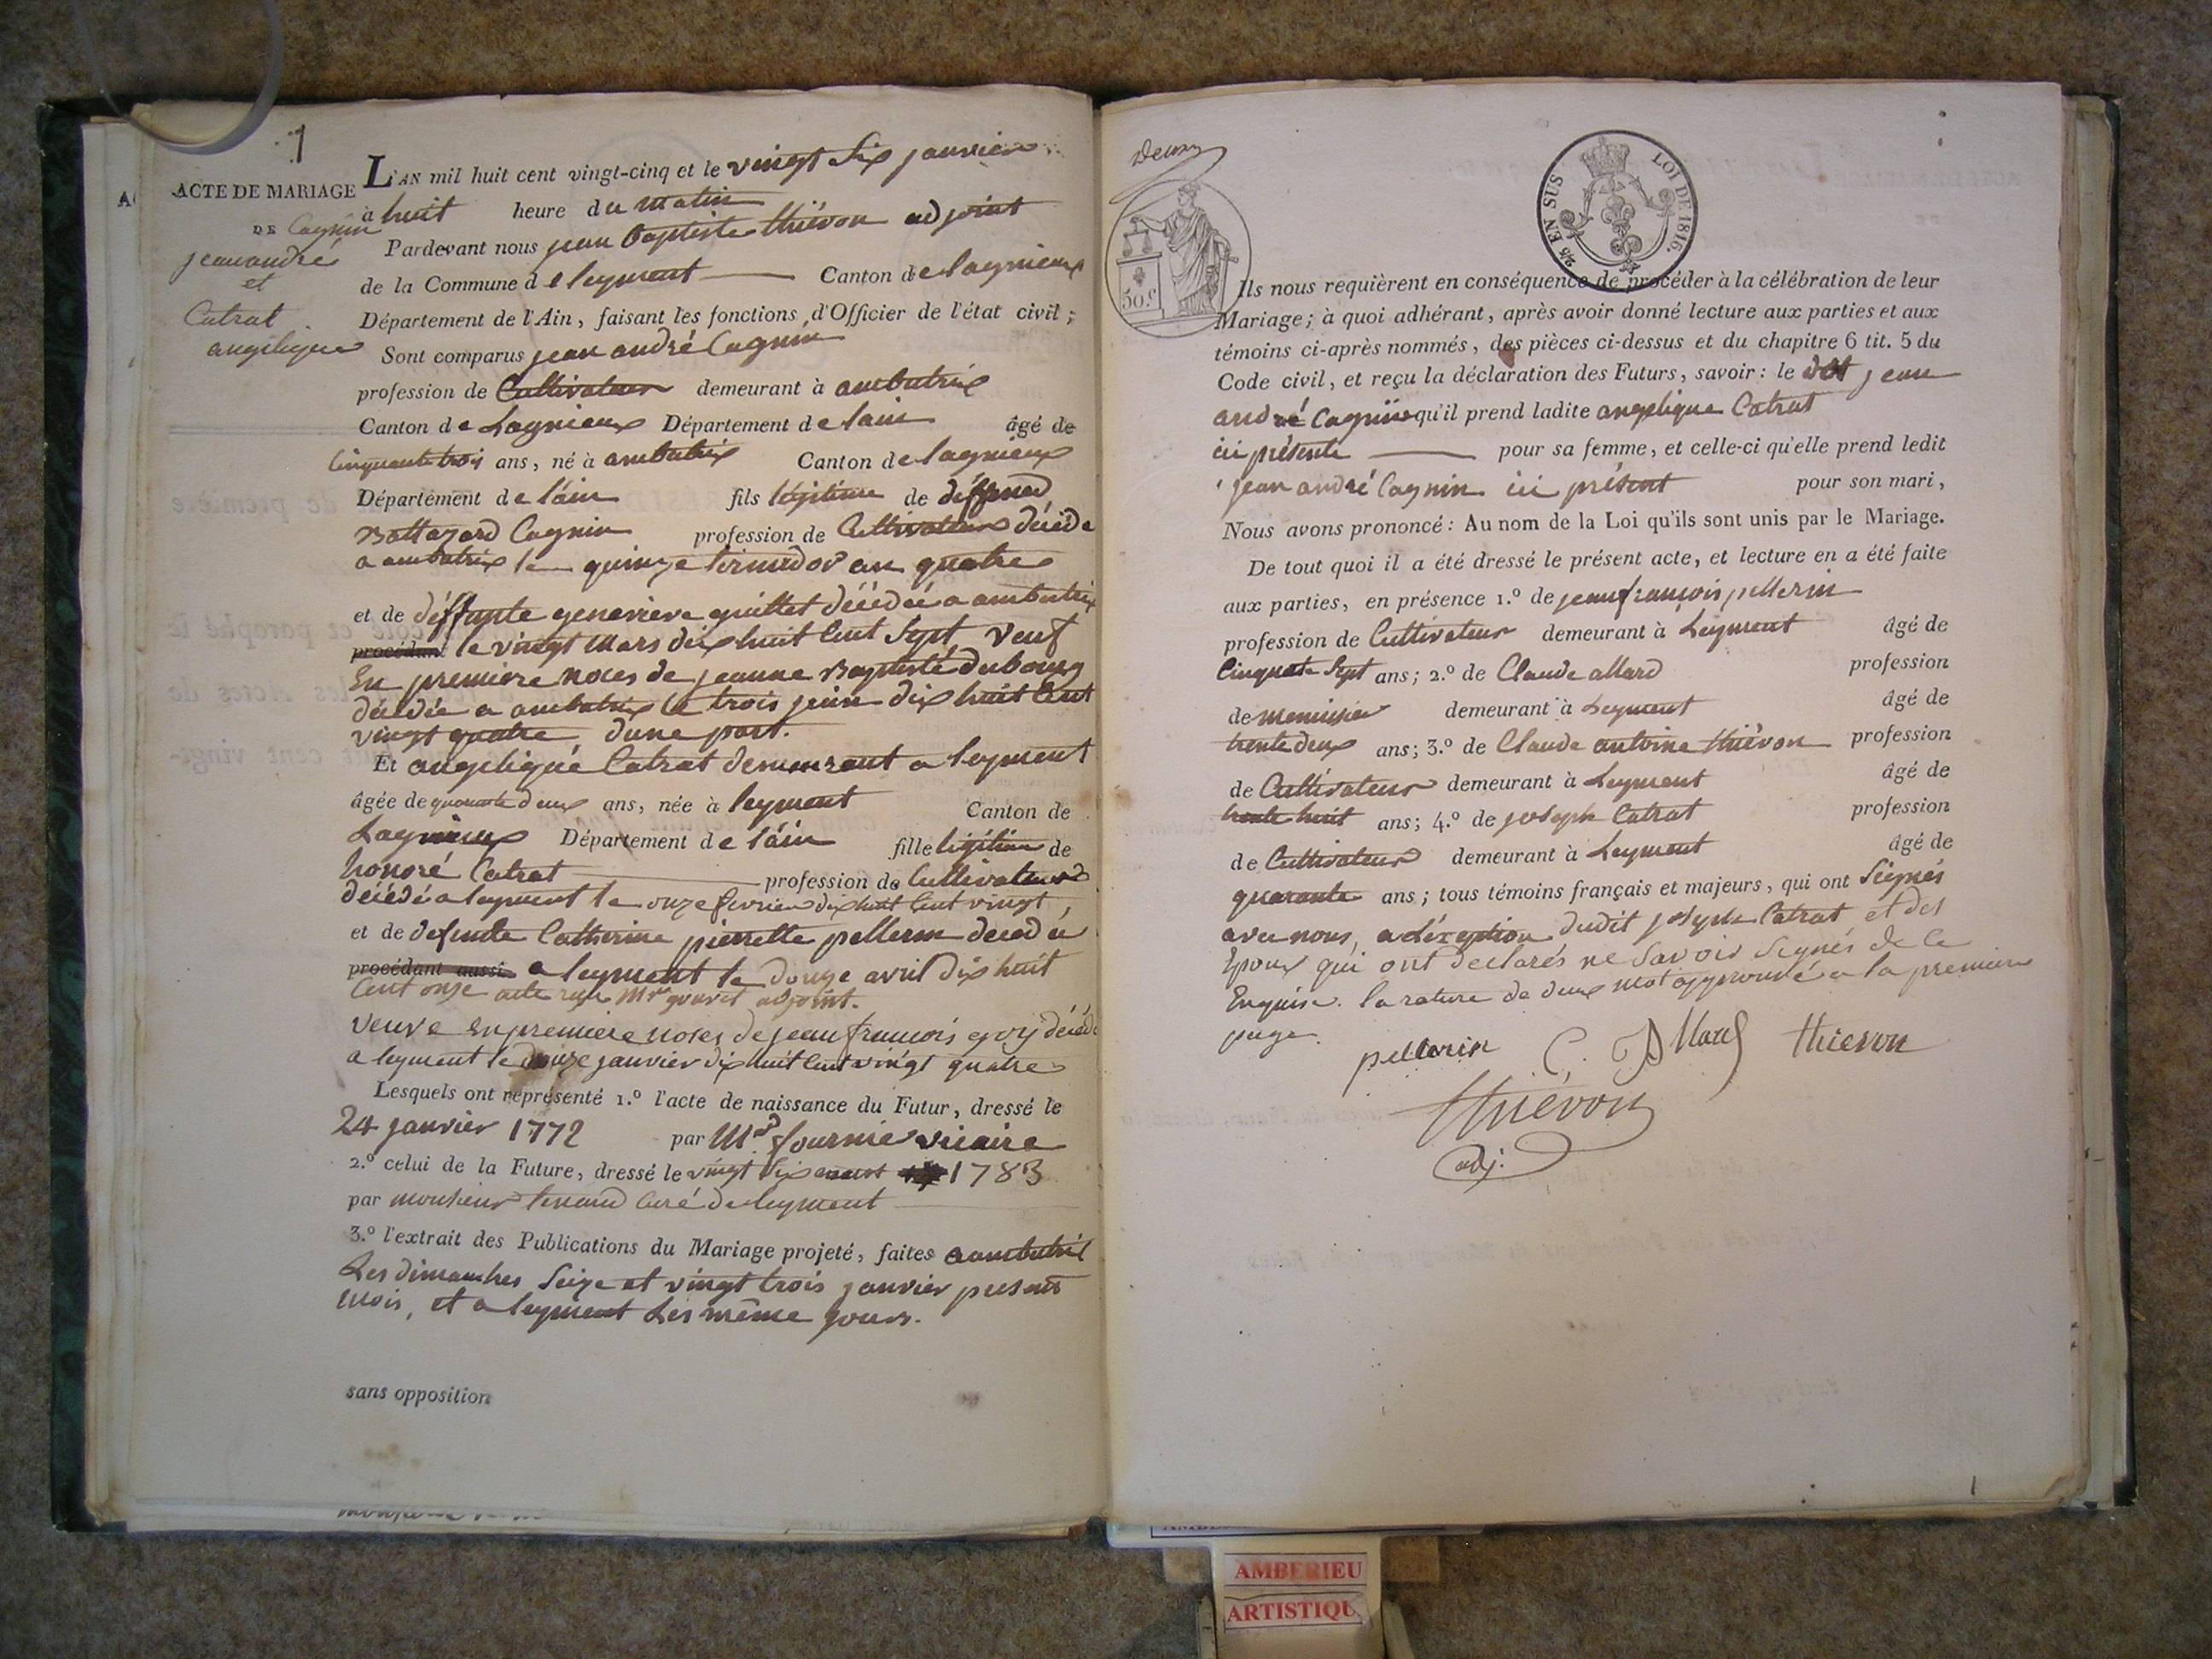 1
ACTE DE MARIAGE
DE Cagnin
jean andré
et
Catrat
angelique
L'AN mil huit cent vingt-cinq et le vingt six janvier
à huit heure du matin
Pardevant nous jean baptiste thiévon adjoint
de la Commune de leyment Canton de lagnieux
Département de l'Ain, faisant les fonctions d'Officier de l'état civil;
Sont comparus jean andré Cagnin
profession de Cultivateur demeurant à ambutrix
Canton de Lagnieux Département de lain âgé de
Cinquante trois ans, né à ambutrix Canton de lagnieux
Département de láin fils légitime de déffund
Baltazard Cagnin profession de Cultivateur décéde
a ambutrix le quinze termidor an quatre
et de déffunte genevieve guillet décédée a ambutrix
procédant le vingt mars dix huit Cent Sept veuf
En premiere noces de jeanne Baptiste dubourg
décédée a ambutrix le trois juin dix huit Cent
vingt quatre dune part.
Et angelique Catrat demeurant a leyment
âgée de quarante deux ans, née à leyment Canton de
Lagnieux Département de láin fille légitime de
honoré Catrat profession de Cultivateur
décédé a leyment le onze fevrier dix huit Cent vingt,
et de defunte Catherine pierrette pellerin decedée
procédant aussi a leyment le douze avril dix huit
Cent onze acte reçu Mr gouvet adjoint.
veuve En premiere noses de jean francois décédé
a leyment le douze janvier dix huit Cent vingt quatre
Lesquels ont représenté 1.º l'acte de naissance du Futur, dressé le
24 janvier 1772 par Mr. fournier vicaire
2.º celui de la Future, dressé le vingt Six 1783
par monsieur curé de leyment
3.º l'extrait des Publications du Mariage projeté, faites a ambutrix
Les dimanches Seize et vingt trois janvier présent
mois, et a leyment Les même jours.
sans opposition
Deux
50.c
2/5 EN SUS
LOI DE 1816.
Ils nous requièrent en conséquence de procéder à la célébration de leur
Mariage; à quoi adhérant, après avoir donné lecture aux parties et aux
témoins ci-après nommés, des pièces ci-dessus et du chapitre 6 tit. 5 du
Code civil, et reçu la déclaration des Futurs, savoir: le dit jean
andré Cagnin qu'il prend ladite angelique Catrat
ici présente pour sa femme, et celle-ci qu'elle prend ledit
jean andré Cagnin ici présent pour son mari,
Nous avons prononcé: Au nom de la Loi qu'ils sont unis par le Mariage.
De tout quoi il a été dressé le présent acte, et lecture en a été faite
aux parties, en présence 1.º de jean françois pellerin
profession de Cultivateur demeurant à Leyment âgé de
Cinquate Sept ans; 2.º de Claude allard profession
de menuisier demeurant à Leyment âgé de
trente deux ans; 3.º de Claude antoine thiévon profession
de Cultivateur demeurant à Leyment âgé de
trente huit ans; 4.º de joseph Catrat profession
de Cultivateur demeurant à Leyment âgé de
quarante ans; tous témoins français et majeurs, qui ont Seignés
avec nous, a léxeption dudit joseph Catrat et des
Epoux qui ont déclarés ne Savoir Seignés de ce
Enquise. la rature de deux mot approuvé a la premiere
page.
pellerin C. Allard thievon
thiévon
adj.
AMBERIEU
ARTISTIQU